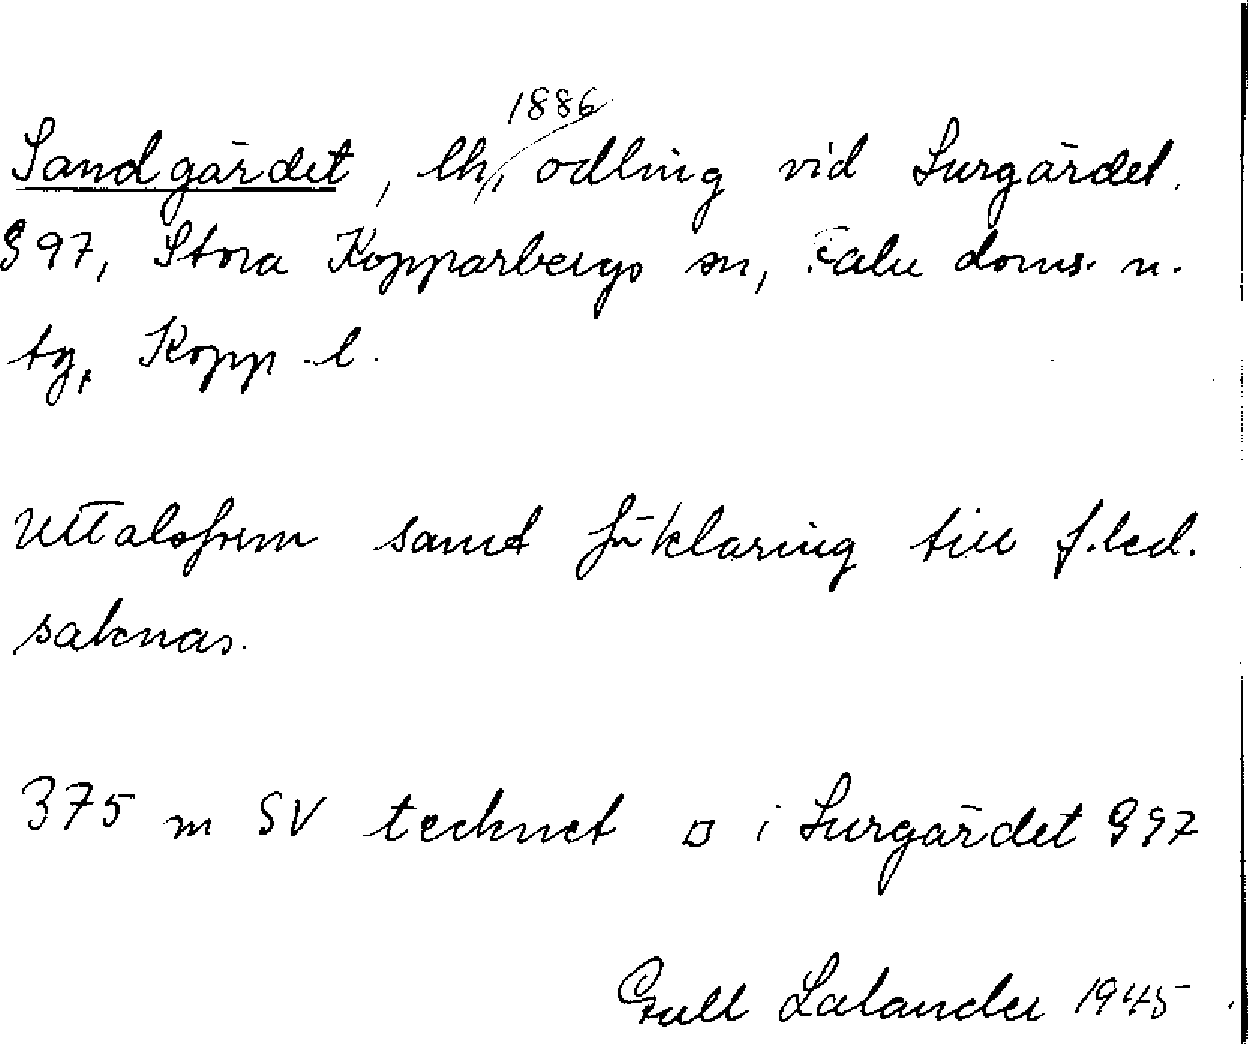 1886
Sandgärdet, lh, odling vid Surgärdet.
§97, Stora Kopparbergs sn, Falu doms. n.
tg, Kopp. l.
Uttalsform samt förklaring till f.led.
saknas.
375 m SV tecknet □ i Surgärdet §97
Gull Lalander 1945